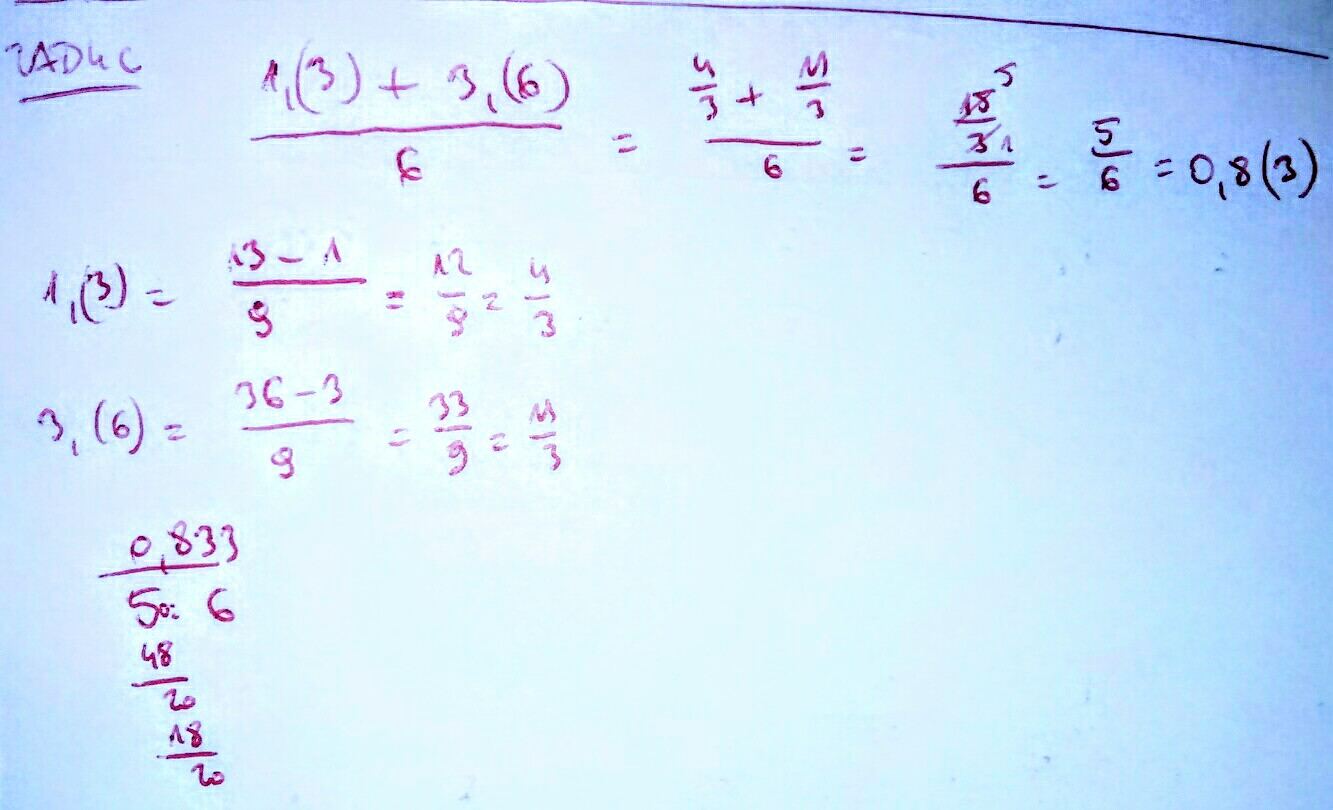 ZAD4C
1,(3) + 3,(6) / 6 = 4/3 + 11/3 / 6 = 15/3 5 1 / 6 = 5/6 = 0,8(3)
1,(3) = 13 - 1 / 9 = 12/9 = 4/3
3,(6) = 36 - 3 / 9 = 33/9 = 11/3
0,833
50: 6
48
20
18
20